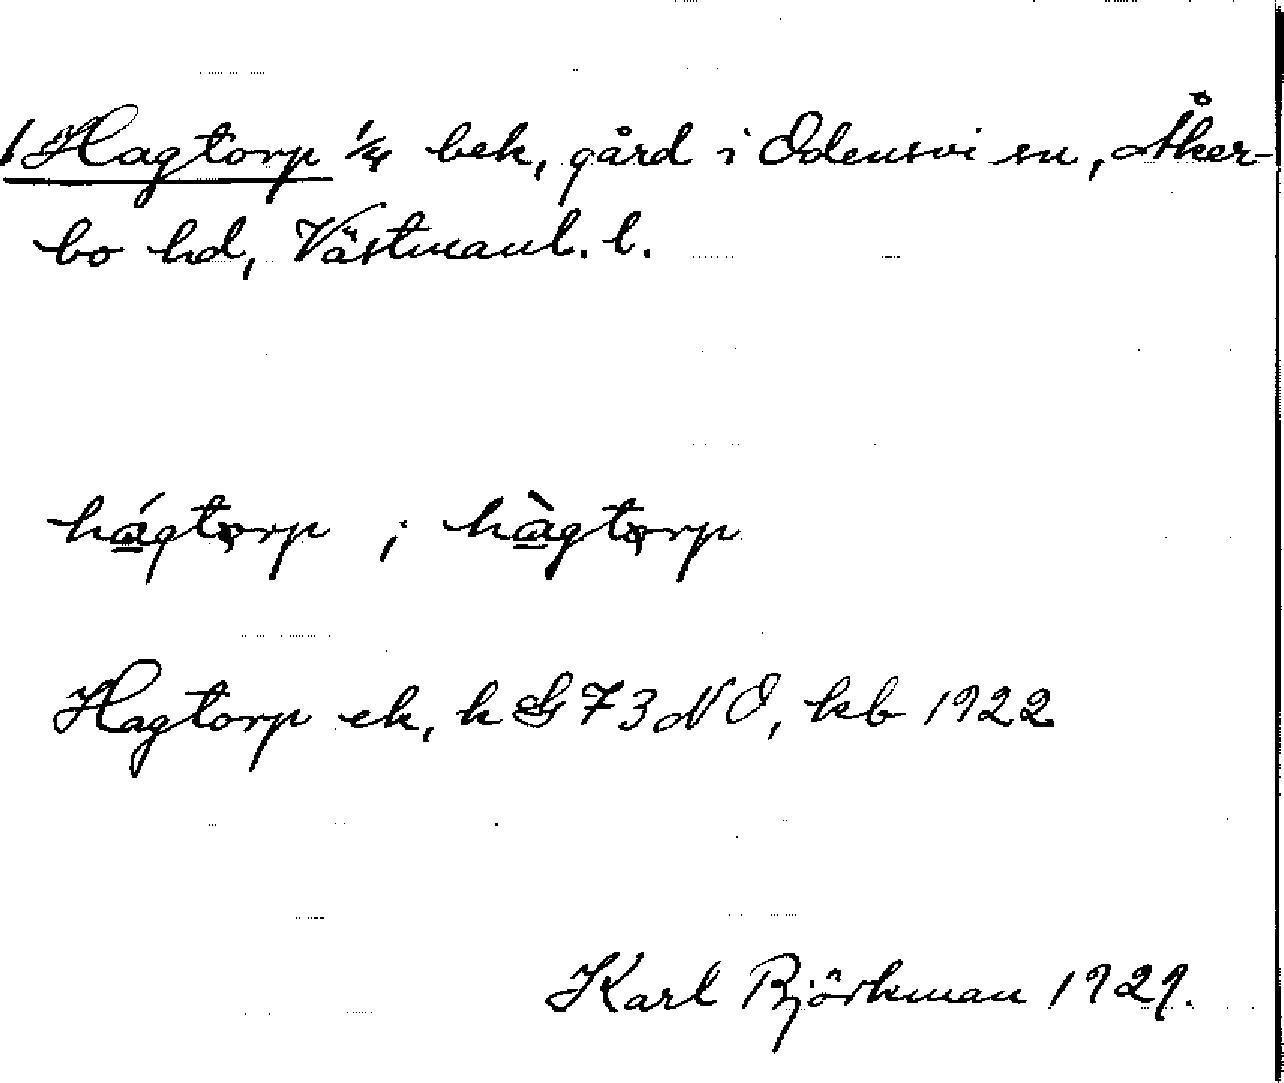 1 Hagtorp 1/4 bek, gård i Odensvi sn, Åker-
bo hd, Västmanl. l.
hágtǫrp ; hàgtǫrp
Hagtorp ek, k G 73 NO, kb 1922
Karl Björkman 1929.